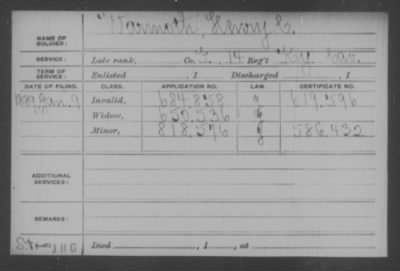 NAME OF SOLDIER: Warmoth, Henry C.
SERVICE: Late rank, Co. I. 14 Reg't Ky. Cav.
TERM OF SERVICE: Enlisted , 1 Discharged , 1
DATE OF FILING. CLASS. APPLICATION NO. LAW. CERTIFICATE NO.
1889, Jan. 9 Invalid, 684.858 619.596
Widow, 652.536
Minor, 818.576 586.432
ADDITIONAL SERVICES:
REMARKS:
J H G Died , 1 , at